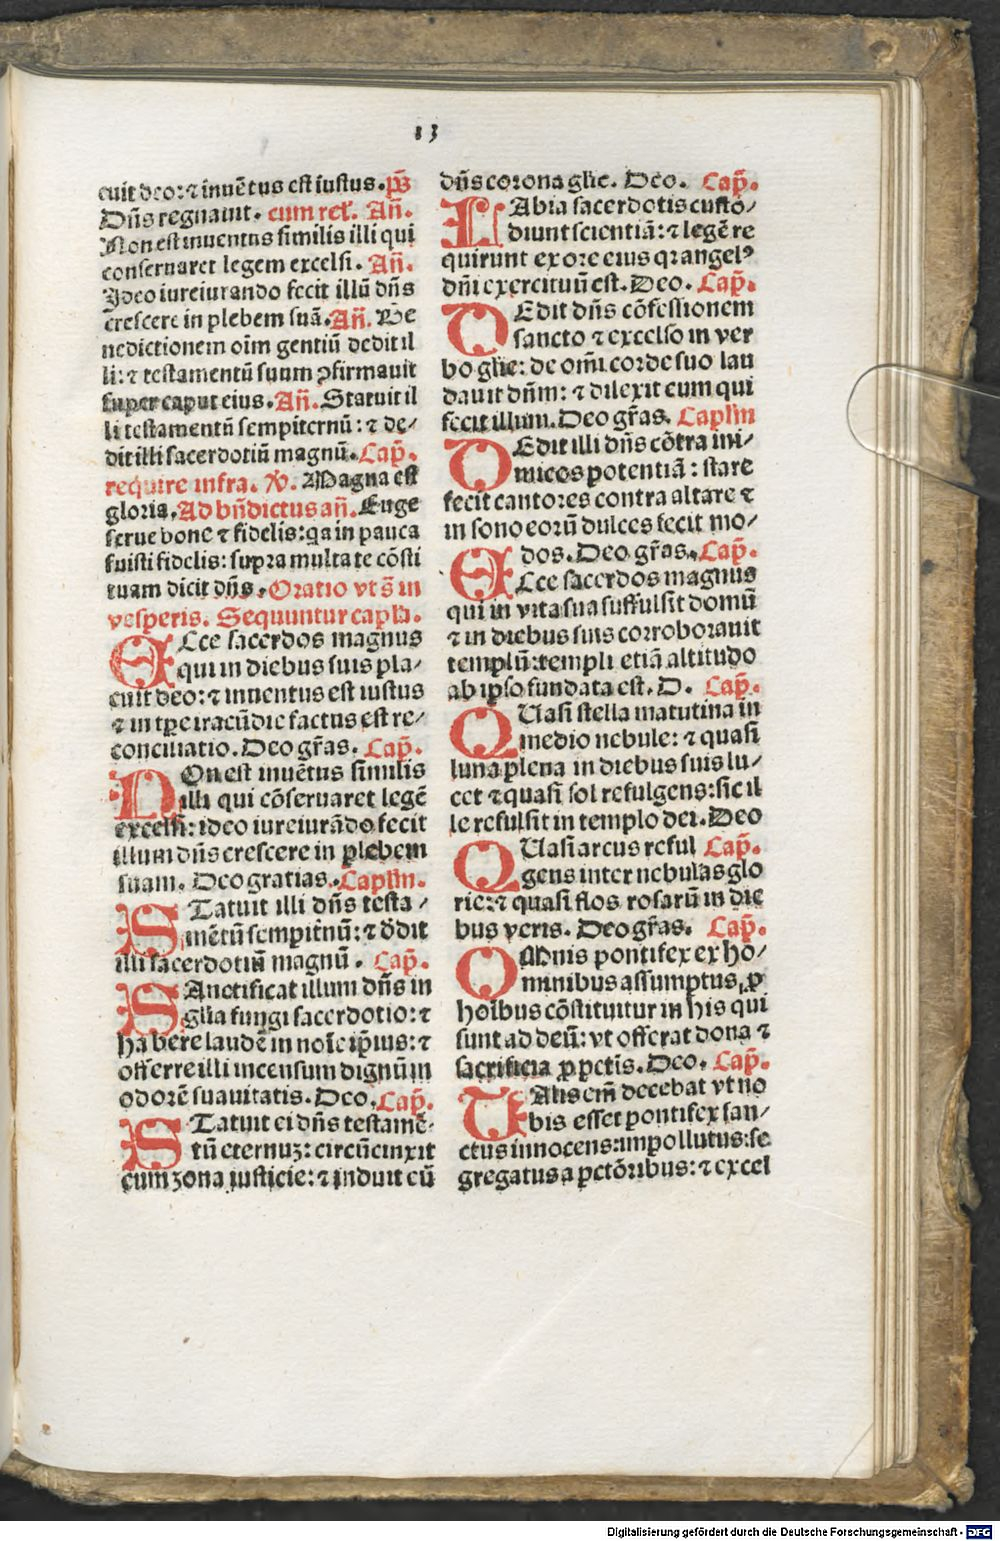 13
cuit deo: ⁊ inuẽtus est iustus. p̃s
Dñs regnauit. cum reĩ. Añ.
Non est inuentus similis illi qui
conseruaret legem excelsi. Añ.
Ideo iureiurando fecit illũ dñs
crescere in plebem suã. Añ. Be
nedictionem oĩm gentiũ dedit il
li: ⁊ testamentũ suum ꝯfirmauit
super caput eius. Añ. Statuit il
li testamentũ sempiternũ: ⁊ de/
dit illi sacerdotiũ magnũ. Cap̃.
require infra. ℣. Magna est
gloria. Ad bñdictus añ. Euge
serue bone ⁊ fidelis: qa in pauca
fuisti fidelis: supra multa te cõsti
tuam dicit dñs. Oratio vt s̃ in
vesperis. Sequuntur capl̃a.
ECce sacerdos magnus
qui in diebus suis pla/
cuit deo: ⁊ inuentus est iustus
⁊ in tp̃e iracũdie factus est re/
conciliatio. Deo gr̃as. Cap̃.
NOn est inuẽtus similis
illi qui cõseruaret legẽ
excelsi: ideo iureiurãdo fecit
illum dñs crescere in plebem
suam. Deo gratias. Caplm̃.
STatuit illi dñs testa/
mẽtũ sempit̃nũ: ⁊ d̃dit
illi sacerdotiũ magnũ. Cap̃.
SAnctificat illum dñs in
gl̃ia fungi sacerdotio: ⁊
habere laudẽ in noĩe ip̃ius: ⁊
offerre illi incensum dignũ in
odorẽ suauitatis. Deo. Cap̃.
STatuit ei dñs testamẽ-
tũ eternuʒ: circũcinxit
eum zona iusticie: ⁊ induit eũ
dñs corona gl̃ie. Deo. Cap̃.
LAbia sacerdotis custo/
diunt scientiã: ⁊ legẽ re
quirunt ex ore eius qꝛ angelꝰ
dñi exercituũ est. Deo. Cap̃.
DEdit dñs cõfessionem
sancto ⁊ excelso in ver
bo gl̃ie: de om̃i corde suo lau
dauit dñm: ⁊ dilexit eum qui
fecit illum. Deo gr̃as. Caplm̃
DEdit illi dñs cõtra ini/
micos potentiã: stare
fecit cantores contra altare ⁊
in sono eorũ dulces fecit mo/
dos. Deo gr̃as. Cap̃.
ECce sacerdos magnus
qui in vita sua suffulsit domũ
⁊ in diebus suis corroborauit
templũ: templi etiã altitudo
ab ip̃so fundata est. D. Cap̃.
QUasi stella matutina in
medio nebule: ⁊ quasi
luna plena in diebus suis lu/
cet ⁊ quasi sol refulgens: sic il
le refulsit in templo dei. Deo
QUasi arcus reful Cap̃.
gens inter nebulas glo
rie: ⁊ quasi flos rosarũ in die
bus veris. Deo gr̃as. Cap̃.
OMnis pontifex ex ho/
minibus assumptus, ꝓ
hoĩbus cõstituitur in his qui
sunt ad deũ: vt offerat dona ⁊
sacrificia ꝓ pctĩs. Deo. Cap̃.
TAlis em̃ decebat vt no
bis esset pontifex san/
ctus innocens: impollutus: se
gregatus a pctõribus: ⁊ excel
Digitalisierung gefördert durch die Deutsche Forschungsgemeinschaft - DFG